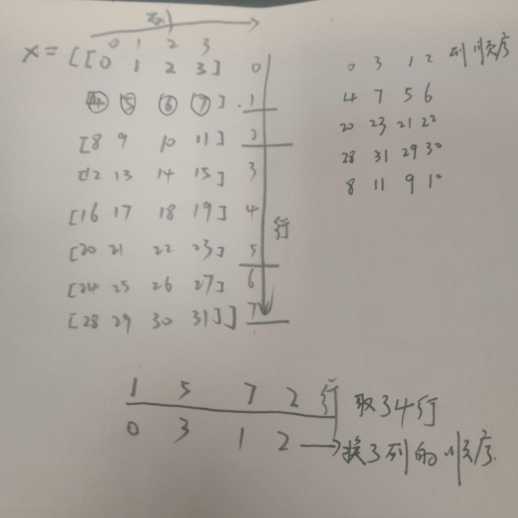 列
0 1 2 3
X = [[0 1 2 3] 0
④ ⑤ ⑥ ⑦ ] 1
[8 9 10 11] 2
[12 13 14 15] 3
[16 17 18 19] 4
行
[20 21 22 23] 5
[24 25 26 27] 6
[28 29 30 31]] 7
0 3 1 2 列顺序
4 7 5 6
20 23 21 22
28 31 29 30
8 11 9 10
1 5 7 2 行 取了4行
0 3 1 2 → 换了列的顺序.